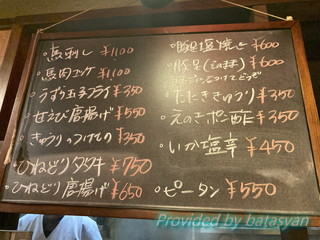 ・馬刺し ¥1100
・馬肉ユッケ ¥1,100
・うずら玉子フライ ¥350
・甘えび唐揚げ ¥550
・きゅうりのつけもの ¥350
・ひねどりタタキ ¥750
・ひねどり唐揚げ ¥650
・豚足塩焼き ¥600
・豚足(そのまま) ¥600
・たたききゅうり ¥350
・えのきポン酢 ¥350
・いか塩辛 ¥450
・ピータン ¥550
Provided by batasyan